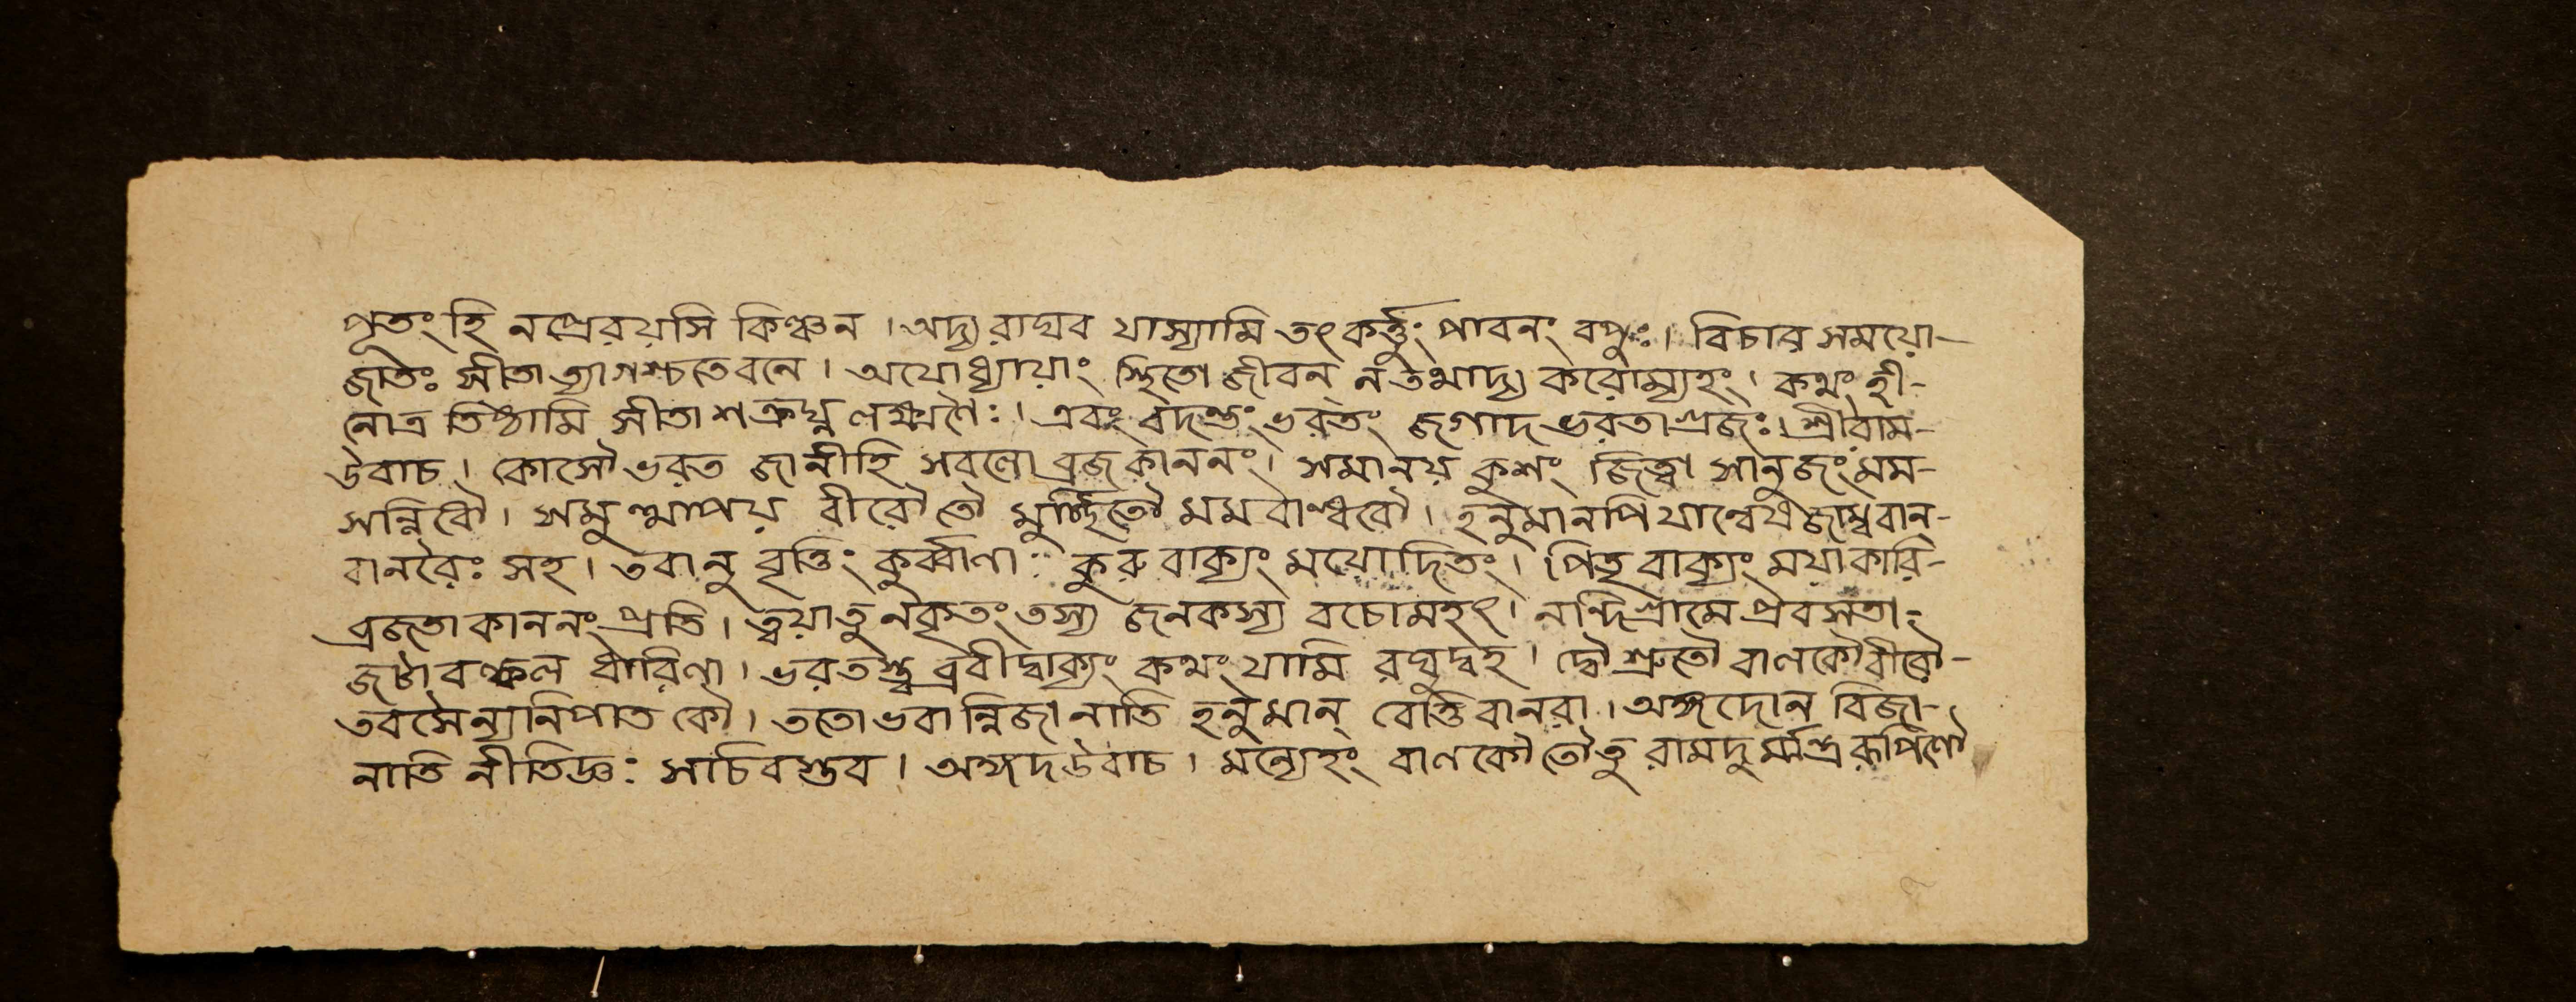 পূতং হি নপ্রেরয়সি কিঞ্চন । অদ্য রাঘব যাস্যামি তৎ কর্ত্তুং পাবনং বপুঃ । বিচার সময়ো-
জাতিঃ সীতা ত্যাগশ্চতে বনে । অযোধ্যায়াং স্থিতো জীবন্ নতথাদ্য করোম্যহং । কথং হী-
নোত্র তিষ্ঠামি সীতা শত্রুঘ্ন লক্ষ্মণৈঃ । এবং বদন্তং ভরতং জগাদ ভরতাগ্রজঃ । শ্রীরাম-
উবাচ । কোসৌ ভরত জানীহি সবলো ব্রজ কাননং । সমানয় কুশং জিত্বা সানুজং মম-
সন্নিধৌ । সমুত্থাপয় বীরৌ তৌ মুর্চ্ছিতৌ মম বান্ধবৌ । হনুমানপি যাত্বেষ জাম্ববান্-
বানরৈঃ সহ । তবানু বৃত্তিং কুর্ব্বাণা কুরু বাক্যং ময়োদিতং । পিতৃ বাক্যং মযাকারি-
ব্রজতা কাননং প্রতি । ত্বয়া তু নকৃতং তস্য জনকস্য বচোমহৎ । নন্দিগ্রামে প্রবসতা-
জটা বল্কল ধারিণা । ভরতস্ত্বব্রবীদ্বাক্যং কথং যামি রঘুদ্বহ । দ্বৌ শ্রুতৌ বালকৌ বীরৌ-
তবসৈন্যনিপাত কৌ । ততো ভবান্নিজানাতি হনুমান্ বেত্তি বানরা । অঙ্গদোন বিজা-
নাতি নীতিজ্ঞঃ সচিবস্তব । অঙ্গদ উবাচ । মন্যেহং বালকৌ তৌতু রাম রূপিণৌ